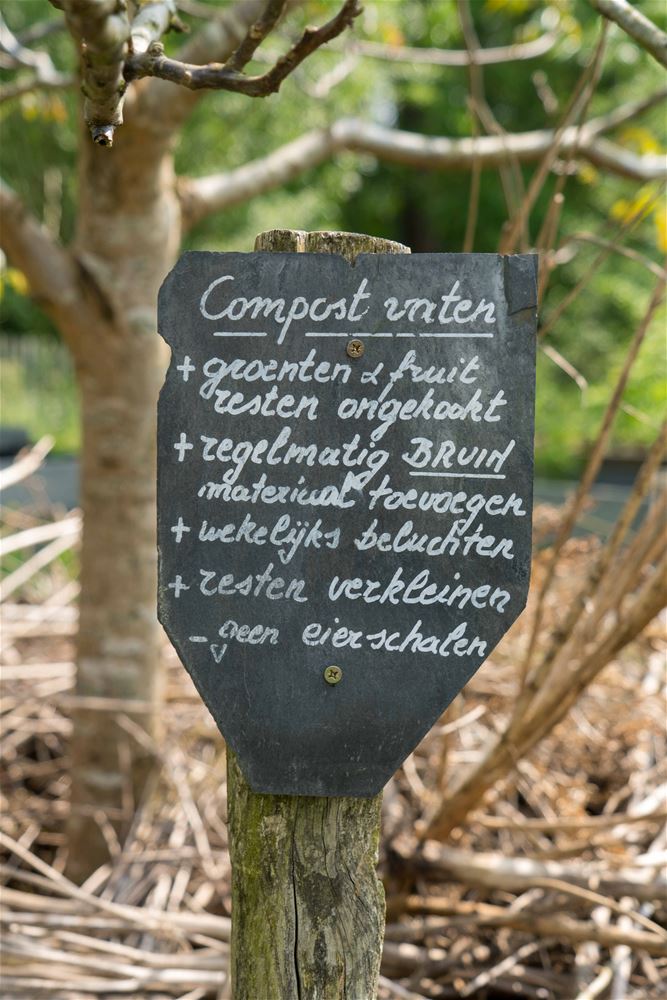 Compost vaten
+ groenten & fruit
resten ongekookt
+ regelmatig BRUIN
materiaal toevoegen
+ wekelijks beluchten
+ resten verkleinen
- geen eierschalen